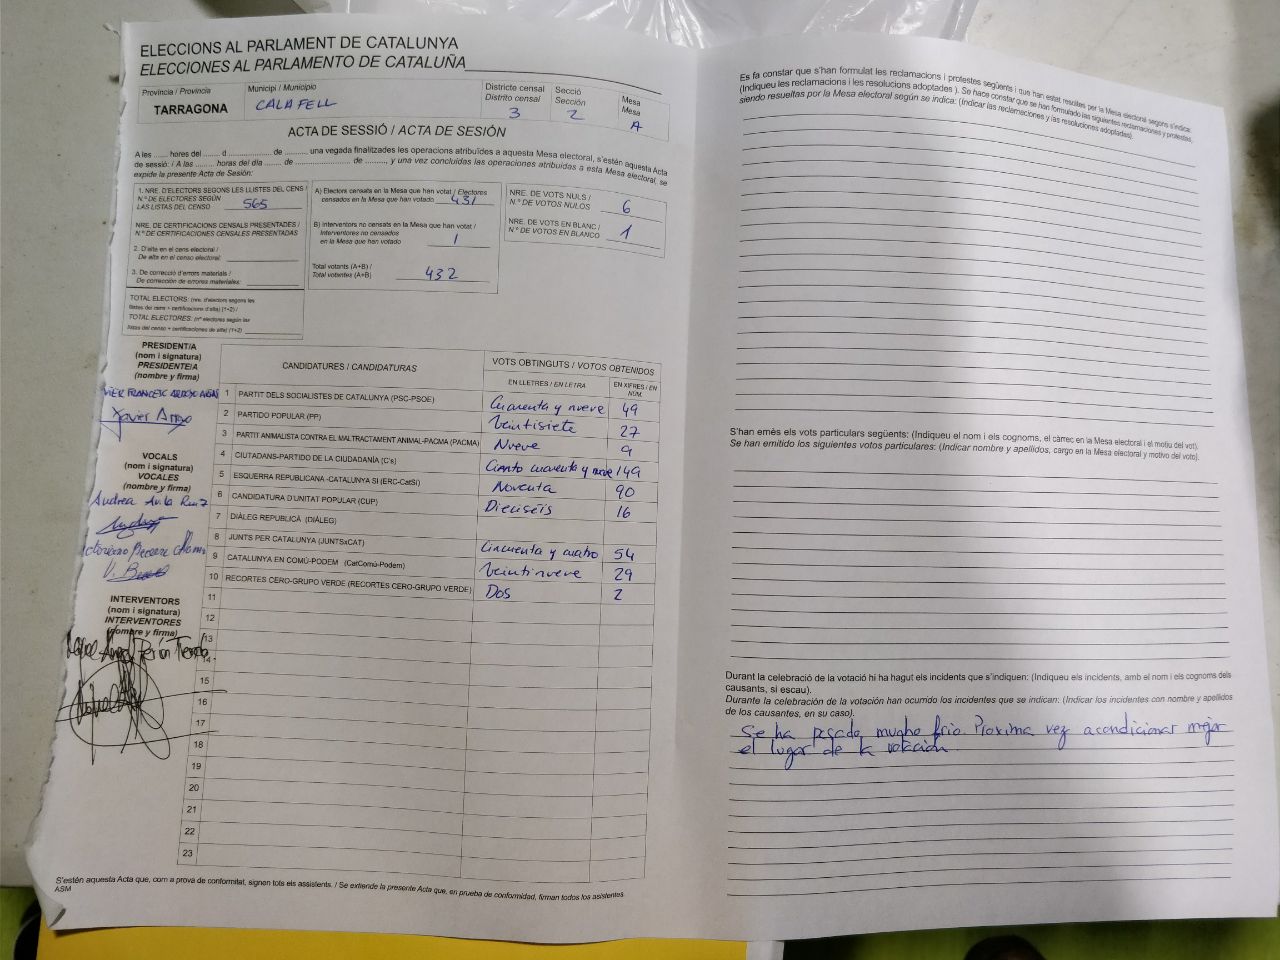 ELECCIONS AL PARLAMENT DE CATALUNYA
ELECCIONES AL PARLAMENTO DE CATALUÑA
Província / Provincia
TARRAGONA
Municipi / Municipio
CALAFELL
Districte censal
Distrito censal
3
Secció
Sección
2
Mesa
Mesa
A
ACTA DE SESSIÓ / ACTA DE SESIÓN
A les ...... hores del ...... d ............... de ......... una vegada finalitzades les operacions atribuïdes a aquesta Mesa electoral, s'estén aquesta Acta
de sessió: / A las ......... horas del día ...... de ............... de ........, y una vez concluidas las operaciones atribuidas a esta Mesa electoral, se
expide la presente Acta de Sesión:
1. NRE. D'ELECTORS SEGONS LES LLISTES DEL CENS /
N.º DE ELECTORES SEGÚN
LAS LISTAS DEL CENSO 565
NRE. DE CERTIFICACIONS CENSALS PRESENTADES /
N.º DE CERTIFICACIONES CENSALES PRESENTADAS
2. D'alta en el cens electoral /
De alta en el censo electoral:
3. De correcció d'errors materials /
De corrección de errores materiales:
TOTAL ELECTORS: (nre. d'electors segons les
llistes del cens + certificacions d'alta) (1+2) /
TOTAL ELECTORES: (nº electores según las
listas del censo + certificaciones de alta) (1+2)
A) Electors censats en la Mesa que han votat / Electores
censados en la Mesa que han votado 431
B) Interventors no censats en la Mesa que han votat /
Interventores no censados
en la Mesa que han votado 1
Total votants (A+B) /
Total votantes (A+B) 432
NRE. DE VOTS NULS /
N.º DE VOTOS NULOS 6
NRE. DE VOTS EN BLANC /
N.º DE VOTOS EN BLANCO 1
PRESIDENT/A
(nom i signatura)
PRESIDENTE/A
(nombre y firma)
Xavier Arroyo
VOCALS
(nom i signatura)
VOCALES
(nombre y firma)
Andrea Avila Ruiz
INTERVENTORS
(nom i signatura)
INTERVENTORES
(nombre y firma)
CANDIDATURES / CANDIDATURAS
VOTS OBTINGUTS / VOTOS OBTENIDOS
EN LLETRES / EN LETRA
EN XIFRES / EN NÚM.
1 PARTIT DELS SOCIALISTES DE CATALUNYA (PSC-PSOE) Cuarenta y nueve 49
2 PARTIDO POPULAR (PP) Veintisiete 27
3 PARTIT ANIMALISTA CONTRA EL MALTRACTAMENT ANIMAL-PACMA (PACMA) Nueve 9
4 CIUTADANS-PARTIDO DE LA CIUDADANÍA (C's) Ciento cuarenta y nueve 149
5 ESQUERRA REPUBLICANA-CATALUNYA SÍ (ERC-CatSí) Noventa 90
6 CANDIDATURA D'UNITAT POPULAR (CUP) Dieciséis 16
7 DIÀLEG REPUBLICÀ (DIÀLEG)
8 JUNTS PER CATALUNYA (JUNTSxCAT) Cincuenta y cuatro 54
9 CATALUNYA EN COMÚ-PODEM (CatComú-Podem) Veintinueve 29
10 RECORTES CERO-GRUPO VERDE (RECORTES CERO-GRUPO VERDE) Dos 2
11
12
13
14
15
16
17
18
19
20
21
22
23
S'estén aquesta Acta que, com a prova de conformitat, signen tots els assistents. / Se extiende la presente Acta que, en prueba de conformidad, firman todos los asistentes.
ASM
Es fa constar que s'han formulat les reclamacions i protestes següents i que han estat resoltes per la Mesa electoral segons s'indica:
(Indiqueu les reclamacions i les resolucions adoptades ). Se hace constar que se han formulado las siguientes reclamaciones y protestas,
siendo resueltas por la Mesa electoral según se indica: (Indicar las reclamaciones y las resoluciones adoptadas).
S'han emès els vots particulars següents: (Indiqueu el nom i els cognoms, el càrrec en la Mesa electoral i el motiu del vot).
Se han emitido los siguientes votos particulares: (Indicar nombre y apellidos, cargo en la Mesa electoral y motivo del voto).
Durant la celebració de la votació hi ha hagut els incidents que s'indiquen: (Indiqueu els incidents, amb el nom i els cognoms dels
causants, si escau).
Durante la celebración de la votación han ocurrido los incidentes que se indican: (Indicar los incidentes con nombre y apellidos
de los causantes, en su caso).
Se ha pasado mucho frio. Proxima vez acondicionar mejor
el lugar de la votación.